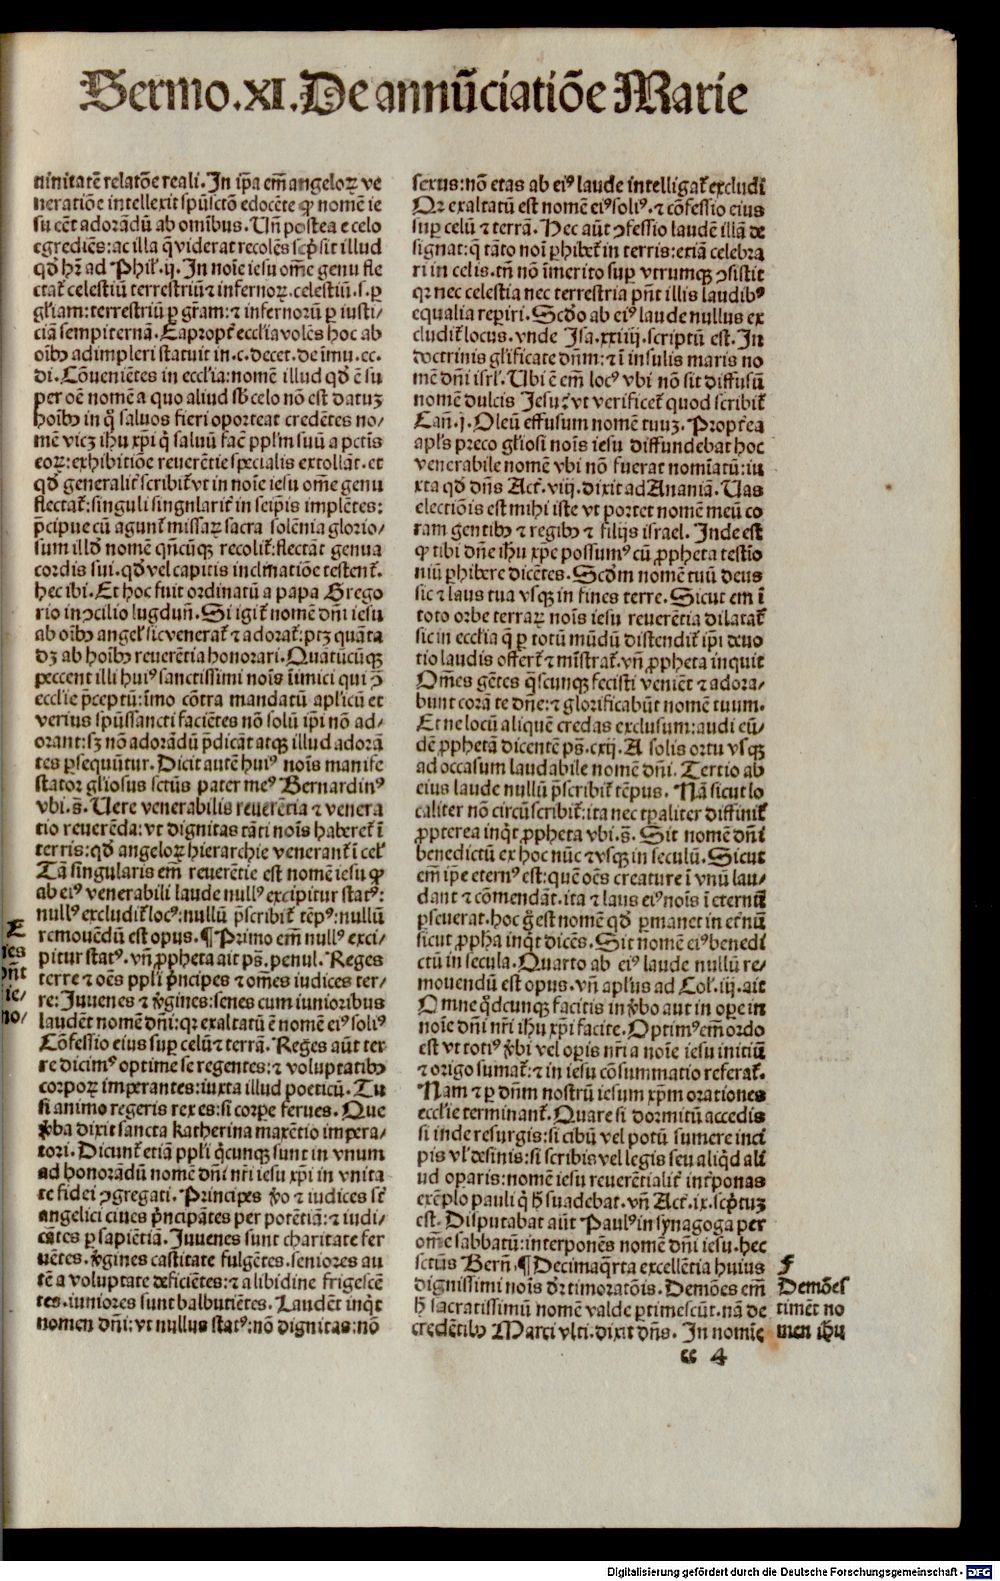 Sermo.XI.De annūciatiōe Marie
ninitatē relatōe reali. In ip̄a em̄ angeloꝝ ve
neratiōe intellexit spūsctōn edocēte ꝙ nomē ie
su eēt adorādū ab omībus. Vn̄ postea e celo
egrediēs: ac illa q̄ viderat recolēs scͥpsit illud
qd̄ hr̄ ad Phil̓. ij. In noīe iesu om̄e genu fle
ctat̄ celestiū terrestriū ⁊ infernoꝝ. celestiū. s. ꝑ
gl̓iam: terrestriū ꝑ gr̄am: ⁊ infernorū ꝑ iusti/
ciā sempiternā. Eapropt̄ eccl̓ia volēs hoc ab
oībꝰ adimpleri statuit in. c. decet. de īmu. ec.
di. Cōveniētes in eccl̓ia: nomē illud qd̄ ē su
per oē nomē a quo aliud sb̓ celo nō est datuꝫ
hoībꝰ in q̄ saluos fieri oporteat credētes no/
mē vicꝫ ihu xp̄i q̄ saluū faē ppl̓m suū a pctīs
eoꝝ: exhibitiōe reuerētie specialis extollāt. et
qd̄ generalit̄ scribit̄ vt in noīe iesu om̄e genu
flectat̄: singuli singularit̄ in seip̄is implētes:
p̄cipue cū agunt̄ missaꝝ sacra solēnia glorio/
sum illd̄ nomē qn̄cūqꝫ recolit̄: flectāt genua
cordis sui. qd̄ vel capitis inclinatiōe testent̄.
hec ibi. Et hoc fuit ordinatū a papa Grego
rio in ꝯcilio lugduñ. Si igit̄ nomē dn̄i iesu
ab oībꝰ angel̓ sic venerat̄ ⁊ adorat̄: ptꝫ quāta
dꝫ ab hoībꝰ reuerētia honorari. Quātūcūqꝫ
peccent illi huiꝰ sanctissimi noīs īimici qui ꝯ̄
ecclie p̄ceptū: īmo cōtra mandatū aplicū et
verius spūssancti faciētes nō solū ip̄i nō ad/
orant: sꝫ nō adorādū p̄dicāt atqꝫ illud adorā
tes ꝑsequūtur. Dicit autē huiꝰ noīs manife
stator gl̓iosus sctūs pater meꝰ Bernardinꝰ
vbi. s̄. Uere venerabilis reuerētia ⁊ venera
tio reuerēda: vt dignitas tāti noīs haberet̄ ī
terris: qd̄ angeloꝝ hierarchie venerant̄ ī cel̓
Tā singularis em̄ reuerētie est nomē iesu ꝙ
ab eiꝰ venerabili laude nullꝰ excipitur statꝰ:
nullꝰ excludit̄ locꝰ: nullū p̄scribit̄ tēpꝰ: nullū
remouēdū est opus. ¶ Primo em̄ nullꝰ exci/
pitur statꝰ. vn̄ ꝓpheta ait ps̄. penul. Reges
terre ⁊ oēs ppl̓i p̄ncipes ⁊ om̄es iudices ter/
re: Juuenes ⁊ v̓gines: senes cum iunioribus
laudēt nomē dn̄i: qꝛ exaltatū ē nomē eiꝰ soliꝰ
Cōfessio eiꝰ suꝑ celū ⁊ terrā. Reges aūt ter
re dicimꝰ optime se regentes: ⁊ voluptatibꝰ
corpoꝝ imperantes: iuxta illud poeticū. Tu
si animo regeris rex es: si corpe serues. Que
v̓ba dixit sancta katherina maxētio impera/
tori. Dicunt̄ etiā ppl̓i q̄cunqꝫ sunt in vnum
ad honorādū nomē dn̄i nr̄i iesu xp̄i in vnita
te fidei ꝯgregati. Principes v̓o ⁊ iudices st̄
angelici ciues p̄ncipātes per potētiā: ⁊ iudi/
cātes ꝑ sapiētiā. Juuenes sunt charitate fer
uētes. v̓gines castitate fulgētes. seniores au
tē a voluptate deficiētes: ⁊ a libidine frigescē
tes. iuniores sunt balbutiētes. Laudēt inq̄t
nomen dn̄i: vt nullus statꝰ: nō dignitas: nō
sexus: nō etas ab eiꝰ laude intelligat̄ excludi
Qꝛ exaltatū est nomē eiꝰ soliꝰ. ⁊ cōfessio eius
suꝑ celū ⁊ terrā. Hec aūt ꝯfessio laudē illā de
signat: q̄ tāto noī ꝑhibet̄ in terris: etiā celebra
ri in celis. tn̄ nō īmerito suꝑ vtrumqꝫ ꝯsistit
qꝛ nec celestia nec terrestria pn̄t illis laudibꝰ
equalia reꝑiri. Scd̄o ab eiꝰ laude nullus ex
cludit̄ locus. vnde Isa. xxiiij. scriptū est. In
doctrinis gl̓ificate dn̄m: ⁊ ī insulis maris no
mē dn̄i isrl̓. Ubi ē em̄ locꝰ vbi nō sit diffusū
nomē dulcis Jesu: vt verificet̄ quod scribit̄
Cañ. j. Oleū effusum nomē tuuꝫ. Propt̄ea
apl̓s preco gl̓iosi noīs iesu diffundebat hoc
venerabile nomē vbi nō fuerat nomīatū: iu
xta qd̄ dn̄s Act̄. viij. dixit ad Ananiā. Uas
electiōis est mihi iste vt portet nomē meū co
ram gentibꝰ ⁊ regibꝰ ⁊ filijs israel. Inde est
ꝙ tibi dn̄e ihu xp̄e possumꝰ cū ꝓpheta testīo
niū ꝑhibere dicētes. Scd̄m nomē tuū deus
sic ⁊ laus tua vsqꝫ in fines terre. Sicut em̄ ī
toto orbe terraꝝ noīs iesu reuerētia dilatat̄
sic in eccl̓ia q̄ ꝑ totū mūdū distendit̄ ip̄i deuo
tio laudis offert̄ ⁊ mīstrat̄. vn̄ ꝓpheta inquit
Om̄es gētes q̄scunqꝫ fecisti veniēt ⁊ adora/
bunt corā te dn̄e: ⁊ glorificabūt nomē tuum.
Et ne locū aliquē credas exclusum: audi eū/
dē ꝓphetā dicentē ps̄. cxij. A solis ortu vsqꝫ
ad occasum laudabile nomē dn̄i. Tertio ab
eius laude nullū p̄scribit̄ tēpus. Nā sicut lo
caliter nō circūscribit̄: ita nec tꝑaliter diffinit̄
ꝓpterea inq̄t ꝓpheta vbi. s̄. Sit nomē dn̄i
benedictū ex hoc nūc ⁊ vsqꝫ in seculū. Sicut
em̄ ip̄e eternꝰ est: quē oēs creature ī vnū lau/
dant ⁊ cōmendāt. ita ⁊ laus eiꝰ noīs ī eternū
ꝑseuerat. hoc g̊ est nomē qd̄ ꝑmanet in et̄nū
sicut ꝓpha inq̄t dicēs. Sit nomē eiꝰ benedi
ctū in secula. Quarto ab eiꝰ laude nullū re/
mouendū est opus. vn̄ apl̓us ad Col̓. iij. ait
Omne q̄dcunqꝫ facitis in v̓bo aut in oꝑe in
noīe dn̄i nr̄i ihu xp̄i facite. Optimꝰ em̄ ordo
est vt totiꝰ v̓bi vel oꝑis nr̄i a noīe iesu initiū
⁊ origo sumat̄: ⁊ in iesu cōsummatio referat̄.
Nam ⁊ ꝑ dn̄m nostrū iesum xp̄m orationes
ecclie terminant̄. Quare si dormitū accedis
si inde resurgis: si cibū vel potū sumere inci
pis vl̓ desinis: si scribis vel legis seu aliq̄d ali
ud oꝑaris: nomē iesu reuerētialit̄ int̄ponas
exēplo pauli q̄ h̄ suadebat. vn̄ Act̄. ix. scͥptuꝫ
est. Disputabat aūt Paulꝰ in synagoga per
om̄e sabbatū: interponēs nomē dn̄i iesu. hec
sctūs Berñ. ¶ Decimaq̄rta excellētia huius
dignissimi noīs dr̄ timoratōis. Demōes em̄
h̄ sacratissimū nomē valde ꝑtimescūt. nā de
credētibꝰ Marci vlti. dixit dn̄s. In nomīe
E
ies
ōn̄t
ie/
no/
F
Demōes
timēt no
men ihu
“ 4
Digitalisierung gefördert durch die Deutsche Forschungsgemeinschaft - DFG